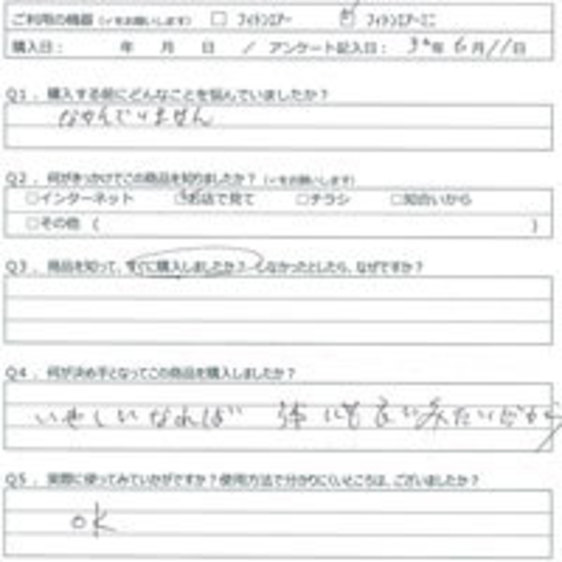 ご利用の機器（✓をお願いします） □ フィトンエアー ☑ フィトンエアーミニ
購入日： 年 月 日 ／ アンケート記入日： 30年6月11日
Q1．購入する前にどんなことを悩んでいましたか？
なやんでいません
Q2．何がきっかけでこの商品を知りましたか？（✓をお願いします）
□インターネット ☑お店で見て □チラシ □知合いから
□その他（ ）
Q3．商品を知って、すぐに購入しましたか？しなかったとしたら、なぜですか？
Q4．何が決め手となってこの商品を購入しましたか？
なれば 体にも良いみたいだから
Q5．実際に使ってみていかがですか？使用方法で分かりにくいところは、ございましたか？
OK